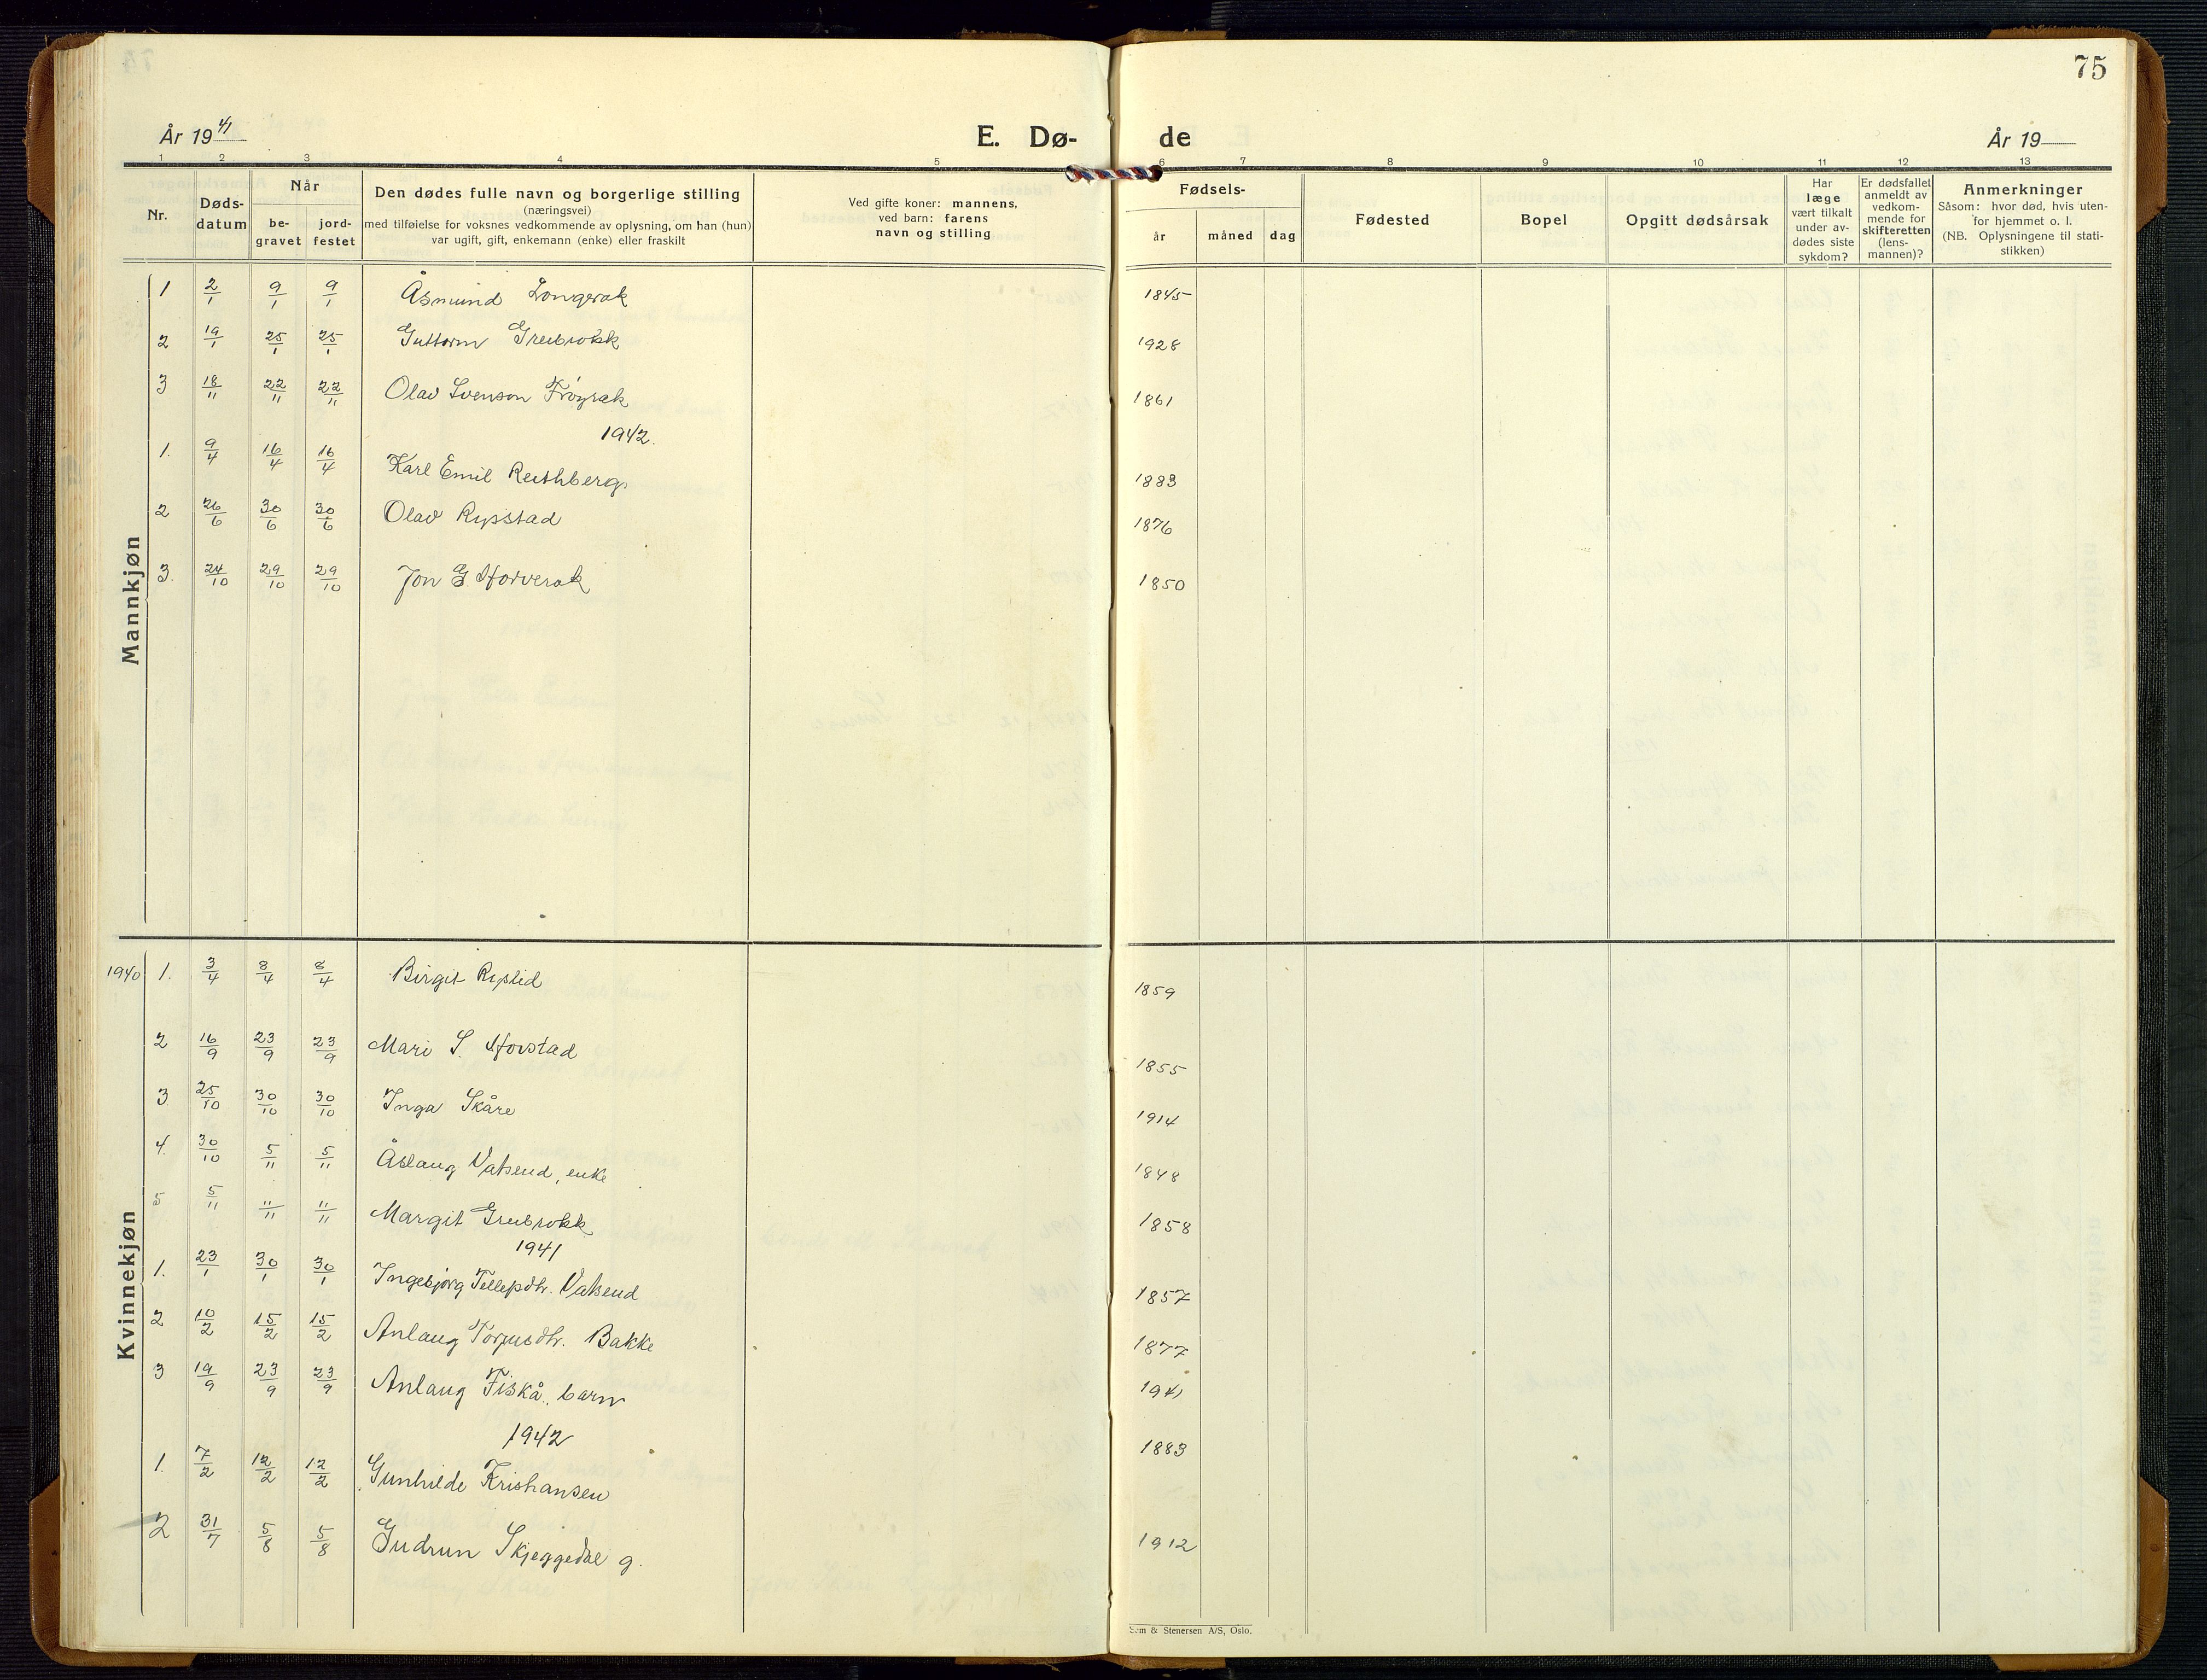 75
År 1941 E. Dø- de År 19
1 2 3 4 5 6 7 8 9 10 11 12 13
Nr.
Døds-
datum
Når
be-
gravet
jord-
festet
Den dødes fulle navn og borgerlige stilling
(næringsvei)
med tilføielse for voksnes vedkommende av oplysning, om han (hun)
var ugift, gift, enkemann (enke) eller fraskilt
Ved gifte koner: mannens,
ved barn: farens
navn og stilling
Fødsels-
år måned dag
Fødested
Bopel
Opgitt dødsårsak
Har
læge
vært tilkalt
under av-
dødes siste
sykdom?
Er dødsfallet
anmeldt av
vedkom-
mende for
skifteretten
(lens-
mannen)?
Anmerkninger
Såsom: hvor død, hvis uten-
for hjemmet o. l.
(NB. Oplysningene til stati-
stikken)
Mannkjøn
1 2/1 9/1 9/1 Åsmund Longerak 1845
2 19/1 25/1 25/1 Guttorm Greibrokk 1928
3 18/11 22/11 22/11 Olav Svenson Frøyrak 1861
1942.
1. 9/4 16/4 16/4 Karl Emil Reithberg 1883
2 26/6 30/6 30/6 Olav Rysstad 1876
3. 24/10 29/10 29/10 Jon G. Horverak 1850
Kvinnekjøn
1940 1. 3/4 8/4 8/4 Birgit Rysstd 1859
2 16/9 23/9 23/9 Mari S. Horstad 1855
3 25/10 30/10 30/10 Inga Skåre 1914
4. 30/10 5/11 5/11 Åslaug Vatsend, enke 1848
5 5/11 11/11 11/11 Margit Greibrokk 1858
1941
1. 23/1 30/1 30/1 Ingebjørg Tellefsdtr. Vatsend 1857
2 10/2 15/2 15/2 Anlaug Torjusdtr. Bakke 1877
3 19/9 23/9 23/9 Anlaug Fiskå, barn 1941
1942
1. 7/2 12/2 12/2 Gunhilde Kristiansen 1883
2 31/7 5/8 5/8 Gudrun Skjeggedal g. 1912
Sem & Stenersen A/S, Oslo.